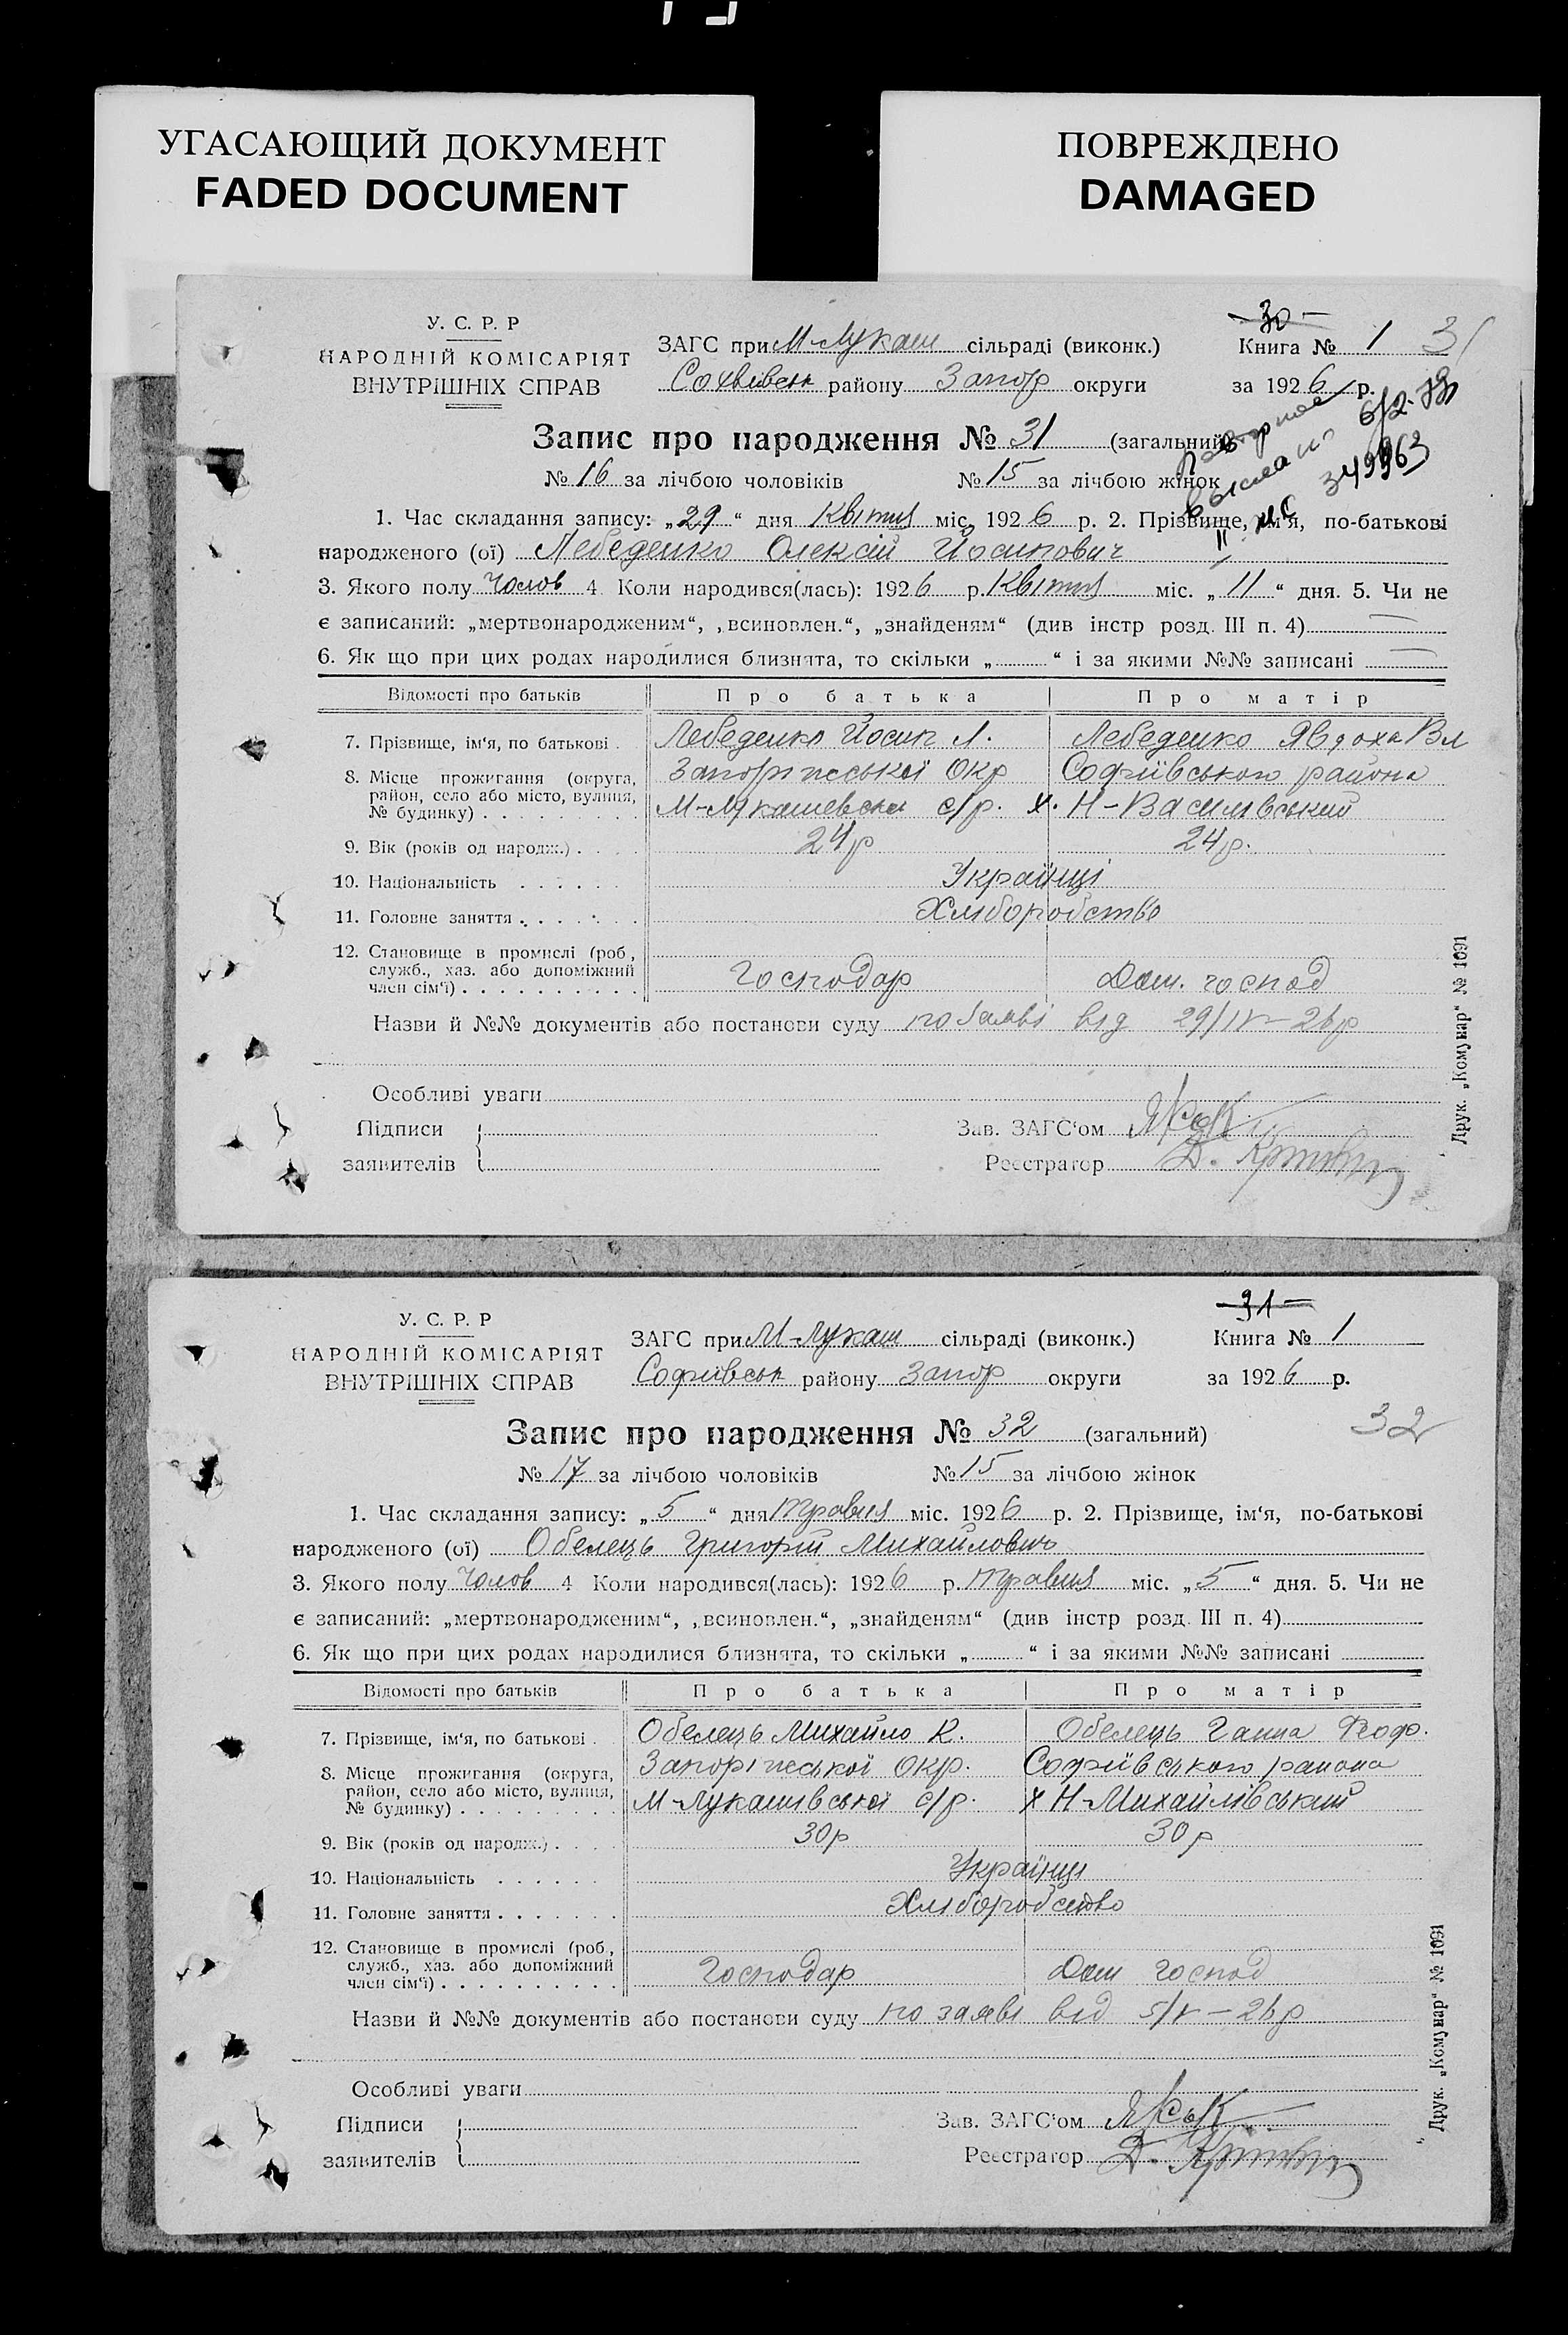 УГАСАЮЩИЙ ДОКУМЕНТ
FADED DOCUMENT
ПОВРЕЖДЕНО
DAMAGED
У. С. Р. Р
НАРОДНІЙ КОМІСАРІЯТ
ВНУТРІШНІХ СПРАВ
ЗАГС при М-Лукаш сільраді (виконк.)
Сохвівськ району Запор округи
30
Книга № 1 31
за 1926 р.
Повторное
выслано 6/2-79
II ЖС 349963
Запис про народження № 31 (загальний)
№ 16 за лічбою чоловіків № 15 за лічбою жінок
1. Час складання запису: „29“ дня Квітня міс. 1926 р. 2. Прізвище, ім'я, по-батькові
народженого (ої) Лебеденко Олексій Йосипович
3. Якого полу чолов 4. Коли народився(лась): 1926 р. Квітня міс. „11“ дня. 5. Чи не
є записаний: „мертвонародженим“, „всиновлен.“, „знайденям“ (див інстр розд. III п. 4)
6. Як що при цих родах народилися близнята, то скільки „ “ і за якими №№ записані
Відомості про батьків Про батька Про матір
7. Прізвище, ім'я, по батькові . Лебеденко Йосип Л. Лебеденко Явдоха Вл
8. Місце прожигання (округа, район, село або місто, вулиця, № будинку) Запоріжської Окр Софіївського района
М-Лукашевська с/р. х. Н-Василівський
9. Вік (років од народж.) 24р 24р.
10. Національність Українці
11. Головне заняття Хліборобство
12. Становище в промислі (роб, служб., хаз. або допоміжний член сім'ї) Господар Дом. господ
Назви й №№ документів або постанови суду по заяві від 29/IV-26р
Особливі уваги
Підписи
заявителів
Зав. ЗАГС'ом
Реєстратор Д.
Друк. „Комунар“ № 1091
У. С. Р. Р
НАРОДНІЙ КОМІСАРІЯТ
ВНУТРІШНІХ СПРАВ
ЗАГС при М-Лукаш сільраді (виконк.)
Софиївськ району Запор округи
31
Книга № 1
за 1926 р.
Запис про народження № 32 (загальний) 32
№ 17 за лічбою чоловіків № 15 за лічбою жінок
1. Час складання запису: „5“ дня травня міс. 1926 р. 2. Прізвище, ім'я, по-батькові
народженого (ої) Обелець Григорій Михайлович
3. Якого полу чолов 4 Коли народився(лась): 1926 р. травня міс. „5“ дня. 5. Чи не
є записаний: „мертвонародженим“, „всиновлен.“, „знайденям“ (див інстр розд. III п. 4)
6. Як що при цих родах народилися близнята, то скільки „ “ і за якими №№ записані
Відомості про батьків Про батька Про матір
7. Прізвище, ім'я, по батькові . Обелець Михайло К. Обелець Ганна Феоф.
8. Місце прожигання (округа, район, село або місто, вулиця, № будинку) Запоріжської Окр. Софіївського района
М-Лукашівської с/р. х Н-Михайлівський
9. Вік (років од народж.) 30р 30р
10. Національність Українці
11. Головне заняття Хліборобство
12. Становище в промислі (роб, служб., хаз. або допоміжний член сім'ї) Господар Дом господ
Назви й №№ документів або постанови суду по заяві від 5/V-26р
Особливі уваги
Підписи
заявителів
Зав. ЗАГС'ом
Реєстратор Д.
Друк. „Комунар“ № 1091